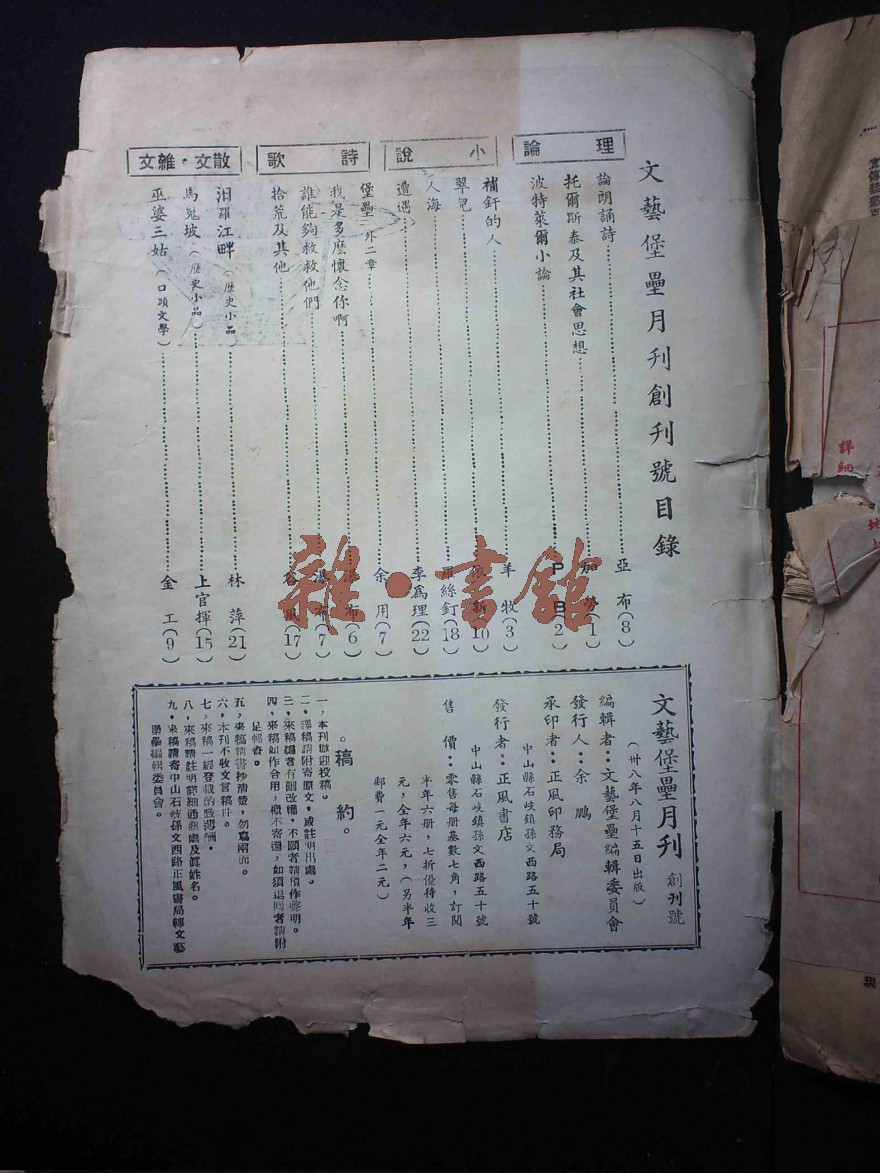 文藝堡壘月刊創刊號目錄
理論
論朗誦詩 亞布(8)
托爾斯泰及其社會思想 加勞(1)
波特萊爾小論 P B(2)
小說
補釘的人 羊牧(3)
翠兒 依新(10)
人海 羅絲釘(18)
遭遇 李爲理(22)
詩歌
堡壘 外二章 余用(7)
我是多麽懷念你啊 布(6)
誰能夠救救他們 布(7)
拾荒及其他 谷風(17)
散文・雜文
汨羅江畔(歷史小品) 林萍(21)
馬嵬坡(歷史小品) 上官揮(15)
巫婆三姑(口頭文學) 金工(9)
文藝堡壘月刊 創刊號
(卅八年八月十五日出版)
編輯者:文藝堡壘編輯委員會
發行人:余鵬
承印者:正風印務局
中山縣石岐鎮孫文西路五十號
發行者:正風書店
中山縣石岐鎮孫文西路五十號
售價:零售每册基數七角,訂閱
半年六册,七折優待收三
元,全年六元,(另半年
郵費一元全年二元)
。稿約。
一,本刊歡迎投稿。
二,譯稿請附寄原文,或註明出處。
三,來稿編者有删改權,不願者請預作聲明。
四,來稿如不合用,概不寄還,如須退囘者請附
足郵資。
五,來稿請書抄清楚,勿寫兩面。
六,本刊不收文言稿件。
七,來稿一經登載酌致薄酬。
八,來稿請註明詳細通訊處及眞姓名。
九,來稿請寄中山石岐孫文西路正風書局轉文藝
堡壘編輯委員會。
雜・書館
詳細
地